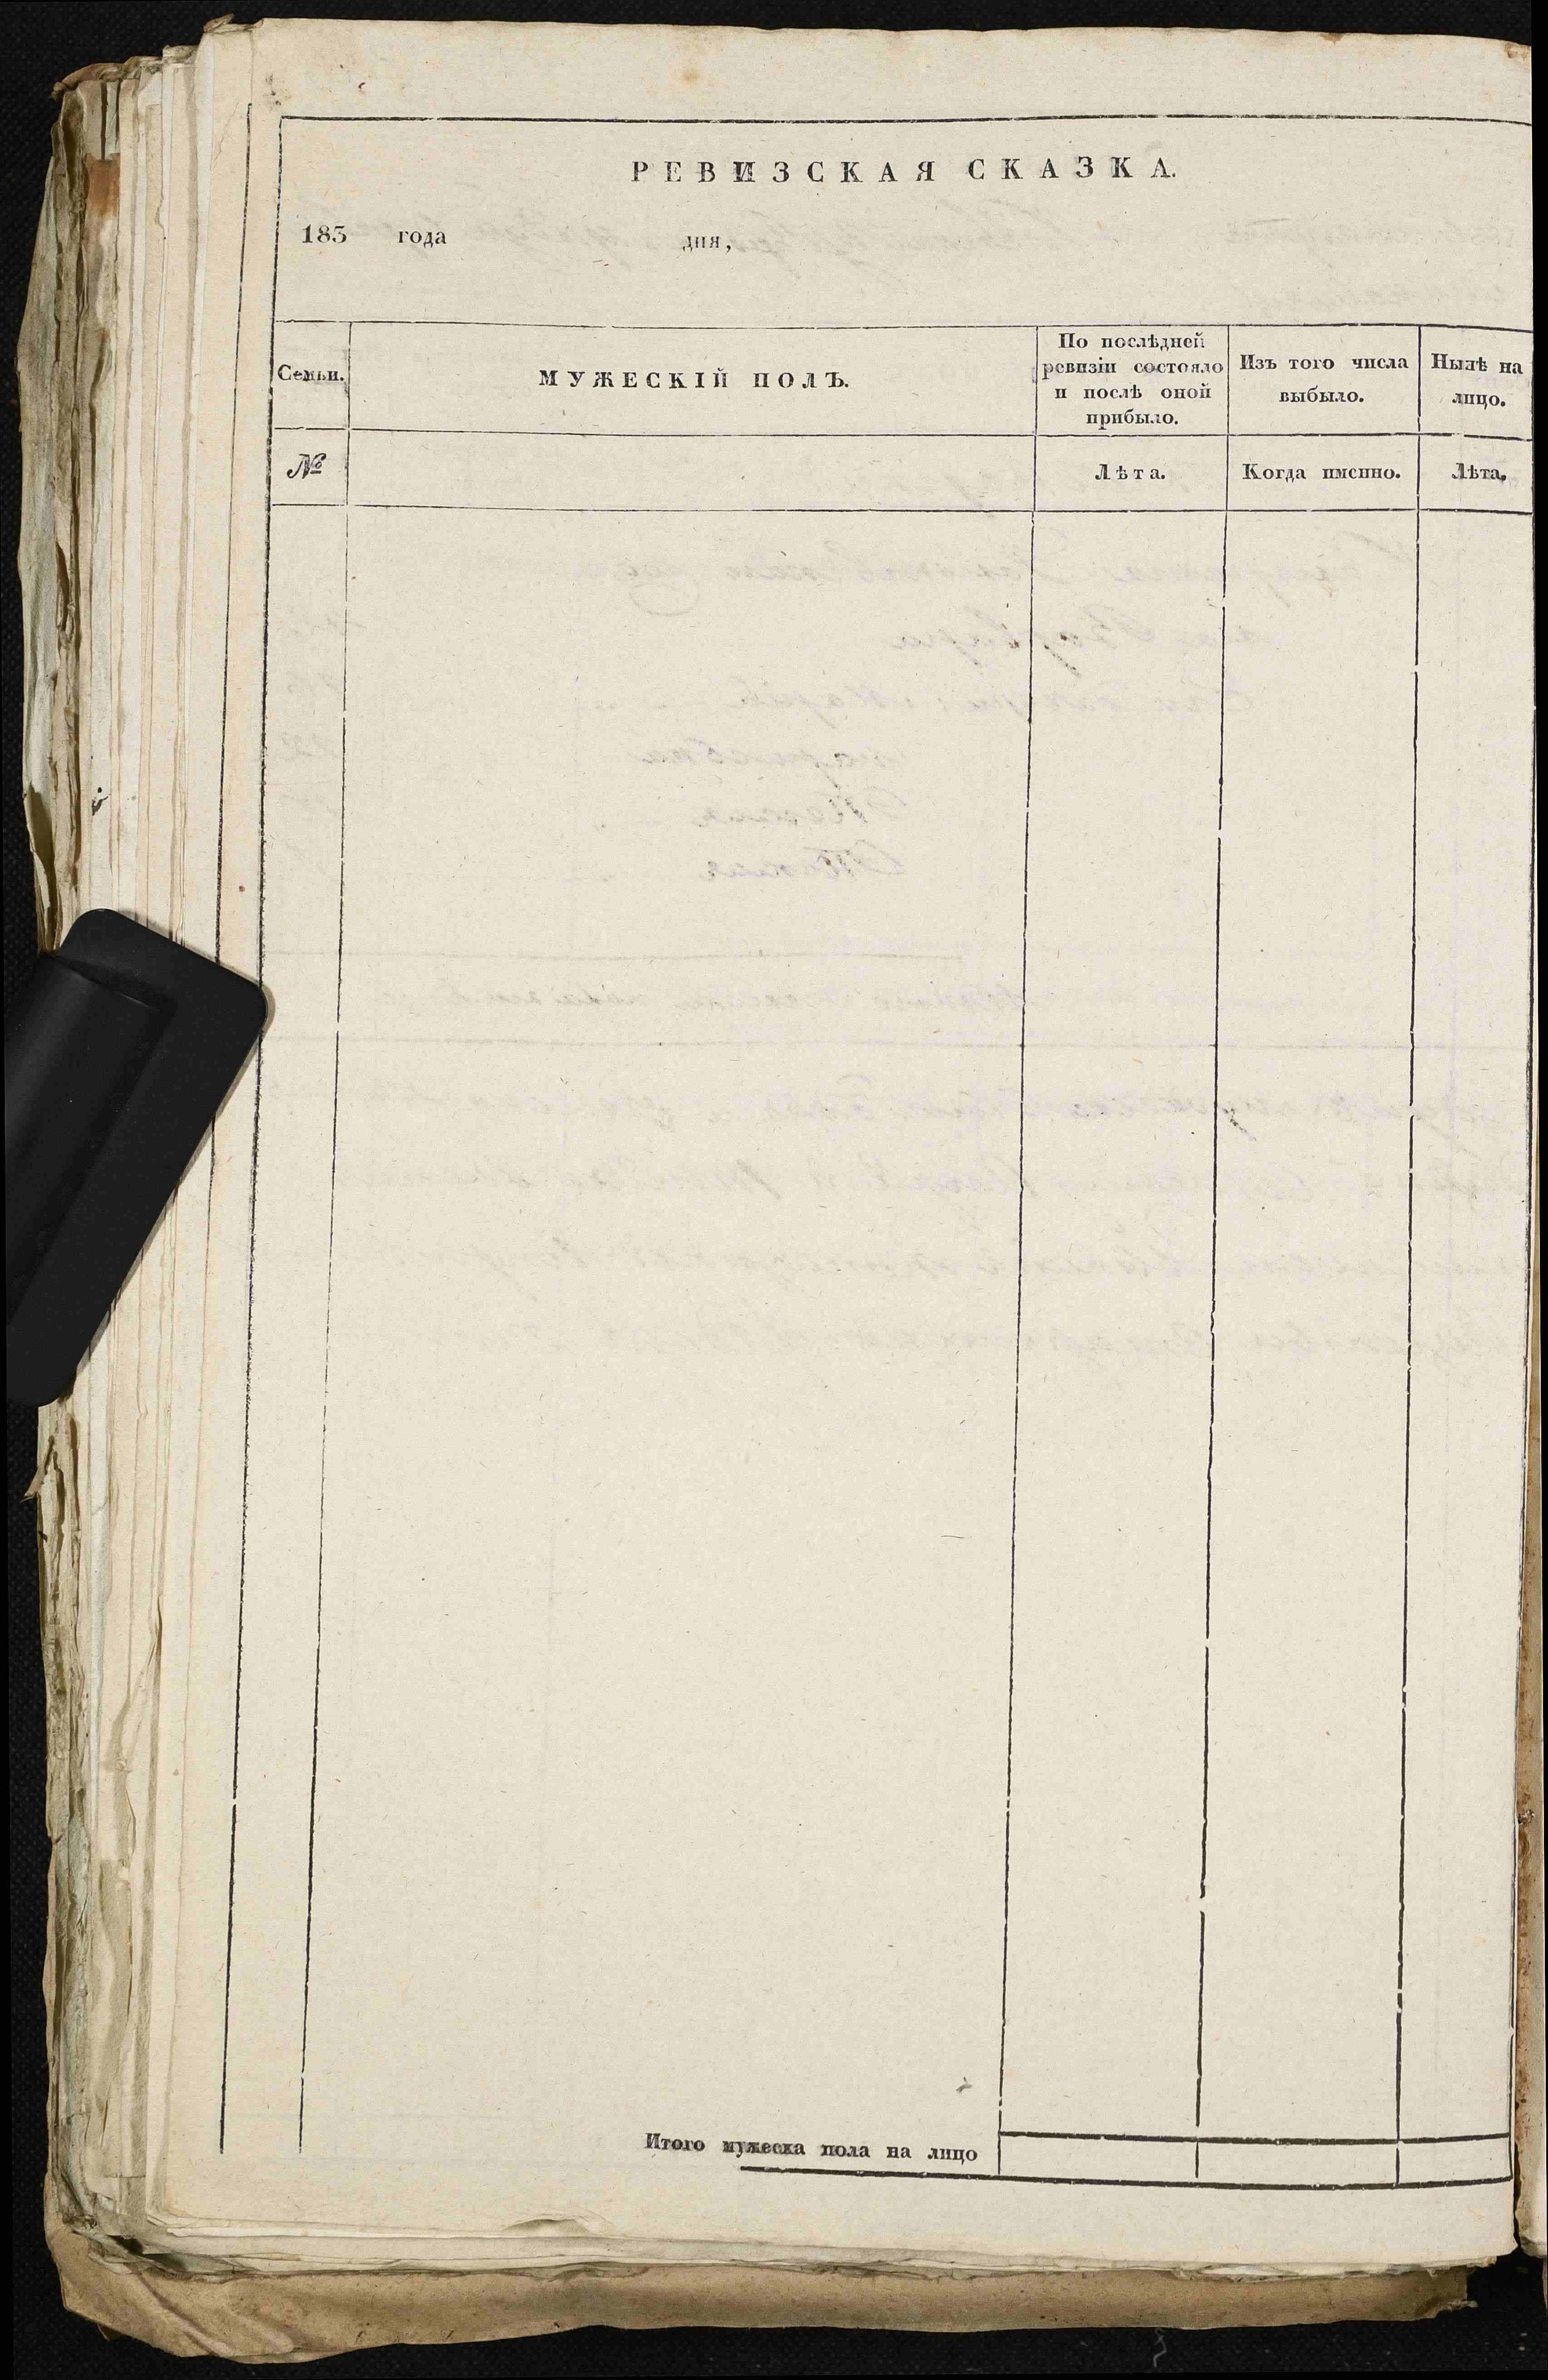 РЕВИЗСКАЯ СКАЗКА.
185 года дня,
Семьи.
МУЖЕСКІЙ ПОЛЪ.
По послѣдней
ревизіи состояло
и послѣ оной
прибыло.
Изъ того числа
выбыло.
Нынѣ на
лицо.
№
Лѣта.
Когда именно.
Лѣта.
Итого мужеска пола на лицо